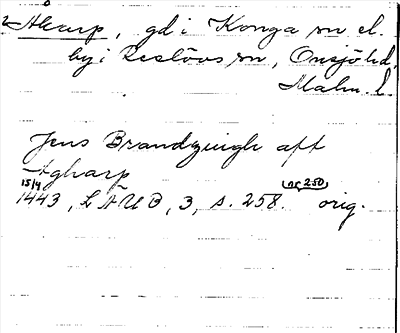 2 Åkarp, gd i Konga sn el.
by i Reslövs sn, Onsjö hd,
Malm. l.
Jens Brandzuigh aff
Agharp
15/4
1443, LÄUB, 3, s. 258. (nr 250) orig.